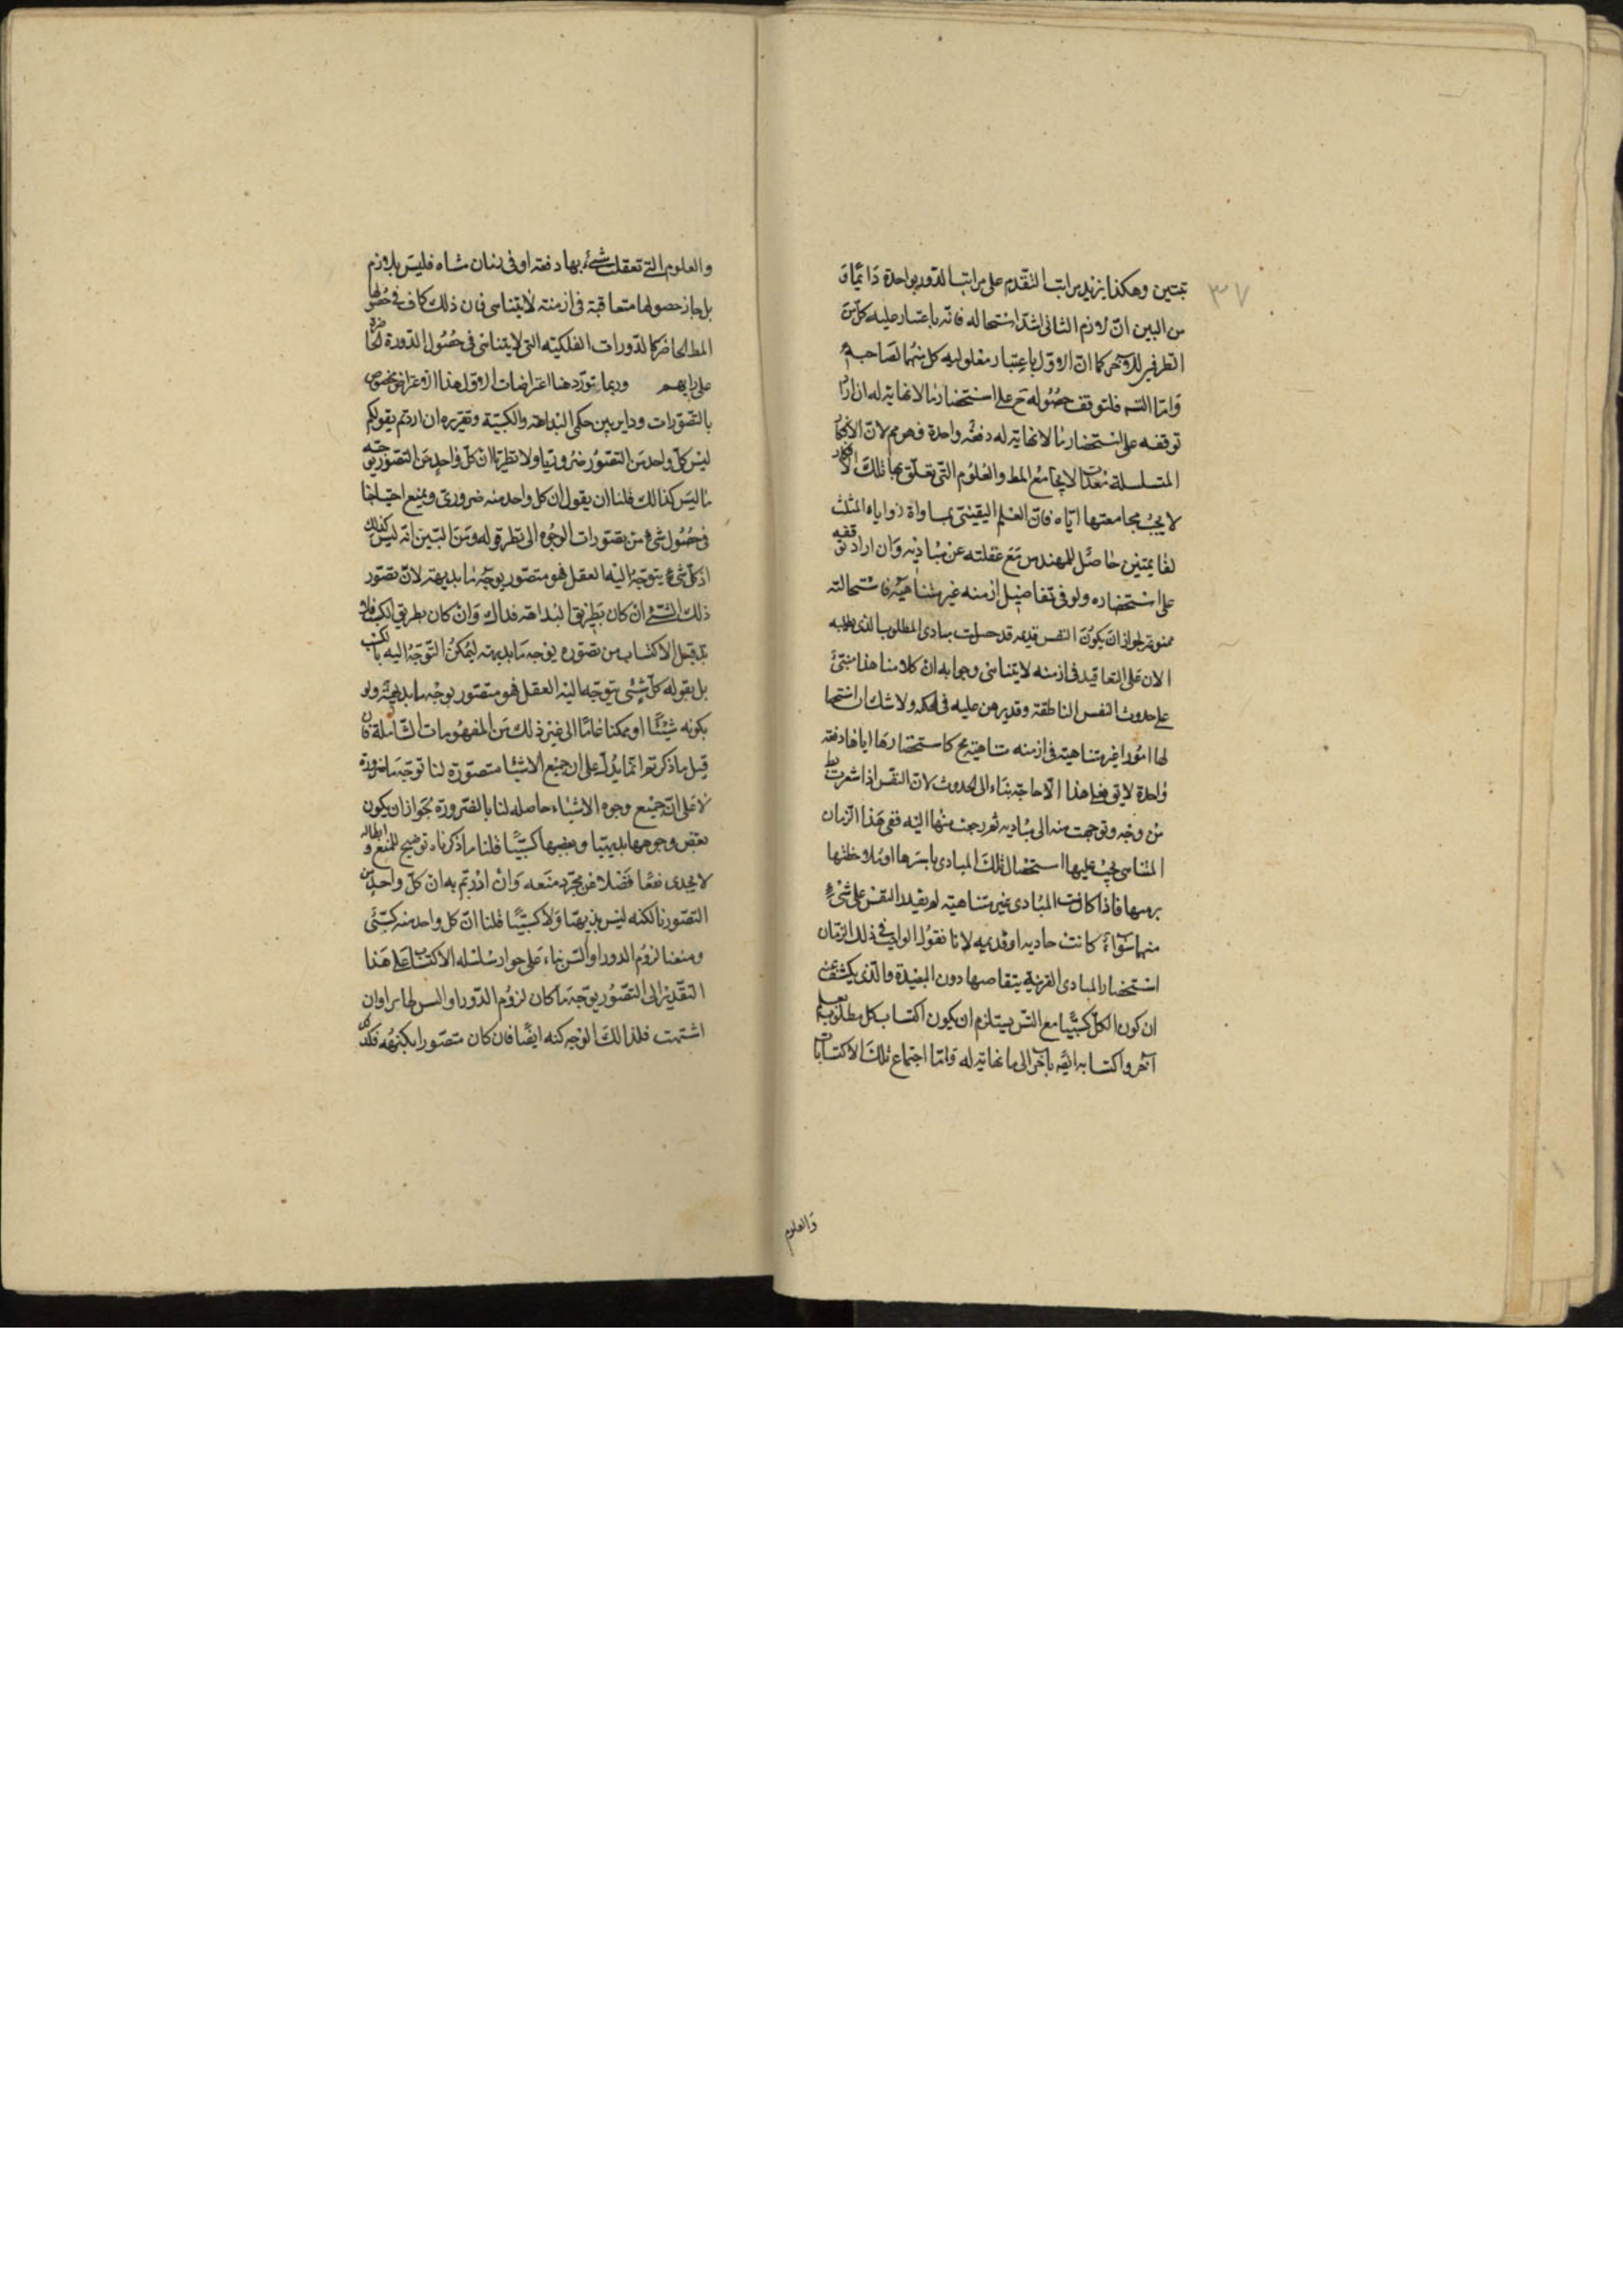 ٣٧
تبتين وهكذا يزيد مراتب التقدم على مراتب الدور بواحدة دائما و
من البين ان لازم الثانى اشد استحاله فانه باعتبار عليه كل من
الطرفين للاخر كما ان الاول باعتبار معلوليه كل منهما لصاحبه
واما التسـ فلتوقف حصوله ح على استحضار ما لا نهاية له ان ارا
توقفه على استحضار ما لا نهاية له دفعة واحدة فهو مم لان الافكا
المتسلسلة معدات لا يجامع المط والعلوم التى تعلق بها تلك الافكار
لا يجب مجامعتها اياه فان العلم اليقينى بمساواة زوايا المثلث
لقايمتين حاصل للمهندس مع غفلته عن مباديه وان اراد توقفه
على استحضاره ولو فى تفاصيل ازمنه غير متناهية فاستحالته
ممنوعة لجواز ان يكون النفس قديمه قد حصلت مبادى المطلوب الذى طلبه
الان على التعاقب فى ازمنه لا يتناهى وجوابه ان كلامنا هذا مبنى
على حدوث النفس الناطقة وقد برهن عليه فى الحكمه ولا شك ان استحضا
لها امورا غير متناهية فى ازمنه متناهية مح كاستحضارها اياها دفعة
واحدة لا يق فعلى هذا لا حاجة بنا الى الحدوث لان النفس اذا شعرت بمط
من وجه وتوجهت منه الى مباديه ثم رجعت منها اليه ففى هذا الزمان
المتناهى يجب عليها استحضال تلك المبادى باسرها او ملاحظتها
برمتها فاذا كانت المبادى غير متناهية لم يقدر النفس على شىء
منهما سواء كانت حاديه او قديمه لانا نقول الواجب فى ذلك الزمان
استحضار المبادى القريبة بتفاصيلها دون البعيدة والذى يكشف عنه
ان كون الكل كسبيا مع التسـ يستلزم ان يكون اكتساب كل مطلوب بعلم
اخر واكتسابه ايضا باخر الى ما نهاية له واما اجتماع تلك الاكتسابات
والعلوم
والعلوم التى تعقلت شىء بها دفعة او فى زمان متناه فليس بلازم
بل جاز حصولها متعاقبة فى ازمنة لا يتناهى فان ذلك كاف فى حصولها
المط الحاضر كالدورات الفلكيته التى لا يتناهى فى حصول الدورة الحاضرة
على رايهم وربما تورد هنا اعتراضات الاول هذا الاعتراض مخصوص
بالتصورات وداير بين حكمى البداهة والكسبية وتقريره ان اردتم بقولكم
ليس كل واحد من التصور ضروريا ولا نظريا ان كل واحد من التصور بوجه
ما ليس كذالك فلنا ان يقول ان كل واحد منه ضرورى ويمنع احتياجنا
فى حصول شىء من تصورات الوجوه الى نظر قوله ومن البين انه ليس كذلك
اذ كل شىء يتوجه اليه العقل فهو متصور بوجه ما بديهة لان تصور
ذلك الشىء ان كان بطريق البداهة فذاك وان كان بطريق الكسب فلا
بد قبل الاكتساب من تصوره بوجه ما بديهة ليمكن التوجه اليه بالكسب
بل بقوله كل شىء يتوجه اليه العقل فهو متصور بوجه ما بديهة ولو
بكونه شيئا او ممكنا عاما الى غير ذلك من المفهومات الشاملة فان
قيل ما ذكرتم انما يدل على ان جميع الاشيا متصورة لنا توجه ما ضرورة
لا على ان جميع وجوه الاشياء حاصله لنا بالضرورة بجواز ان يكون
بعض وجوهها بديهيا وبعضها كسبيا فلنا ما ذكرناه توضيح للمنع وابطاله
لا يجدى نفعا فضلا من مجرد منعه وان اردتم به ان كل واحد من
التصور بالكنه ليس بديهيا ولا كسبيا فلنا ان كل واحد منه كسبى
ومنعنا لزوم الدور او التسـ بناء على جواز سلسله الاكتساب على هذا
التقدير الى التصور بوجه ما كان لزوم الدور او التسـ ظاهرا وان
اشتهت فلذالك الوجه كنه ايضا فان كان متصورا بكنهه فكذ